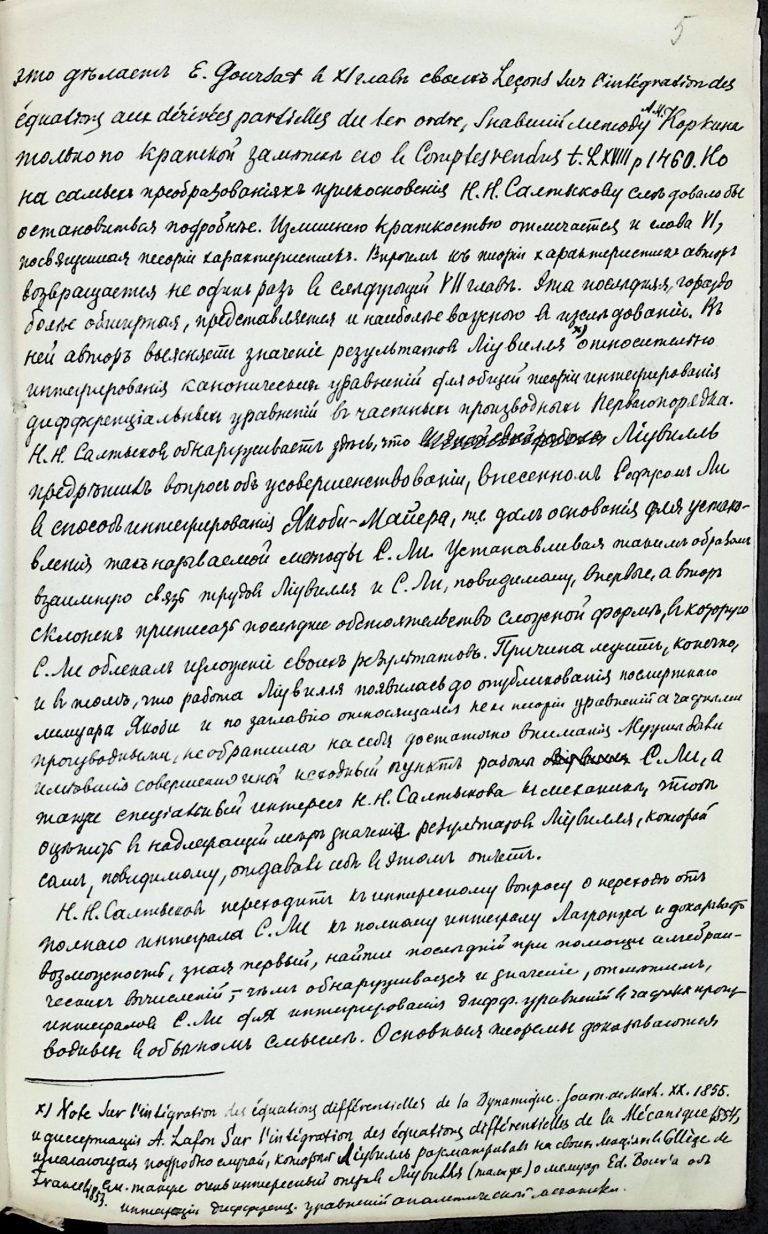 5
это дѣлаетъ E. Goursat въ XI главѣ своихъ Leçons sur l'intégration des
équations aux dérivées partielles du 1er ordre, знавшій методу А.Н. Коркина
только по краткой замѣткѣ его въ Comptes rendus t. LXVIII p 1460. Но
на самыхъ преобразованіяхъ прикосновенія Н.Н. Салтыкову слѣдовало бы
остановиться подробнѣе. Излишнею краткостью отличается и глава VI,
посвященная теоріи характеристикъ. Впрочемъ къ теоріи характеристикъ авторъ
возвращается не одинъ разъ въ слѣдующей VII главѣ. Эта послѣдняя, гораздо
болѣе обширная, представляется и наиболѣе важною въ изслѣдованіи. Въ
ней авторъ выясняетъ значеніе результатовъ Ліувилля x) относительно
интегрированія каноническихъ уравненій для общей теоріи интегрированія
дифференціальныхъ уравненій въ частныхъ производныхъ перваго порядка.
Н.Н. Салтыковъ обнаруживаетъ здѣсь, что Ліувилль
предрѣшилъ вопросъ объ усовершенствованіи, внесенномъ Софусомъ Ли
въ способъ интегрированія Якоби-Майера, т.е. далъ основанія для устано-
вленія такъ называемой методы С. Ли. Устанавливая такимъ образомъ
взаимную связь трудовъ Ліувилля и С. Ли, повидимому, впервые, авторъ
склоненъ приписать послѣднее обстоятельство сложной формѣ, въ которую
С. Ли облекалъ изложеніе своихъ результатовъ. Причина лежитъ, конечно,
и въ томъ, что работа Ліувилля появилась до опубликованія посмертнаго
мемуара Якоби и по заглавію относящаяся не къ теоріи уравненій съ частными
производными, не обратила на себя достаточно вниманія. Нуженъ былъ
совершенно иной исходный пунктъ работы С. Ли, а
также спеціальный интересъ Н.Н. Салтыкова къ механикѣ, чтобы
оцѣнить въ надлежащей мѣрѣ значеніе результатовъ Ліувилля, который
самъ, повидимому, отдавалъ себѣ въ этомъ отчетъ.
Н.Н. Салтыковъ переходитъ къ интересному вопросу о переходѣ отъ
полнаго интеграла С. Ли къ полному интегралу Лагранжа и доказываетъ
возможность, зная первый, найти послѣдній при помощи алгебраи-
ческихъ вычисленій, – чѣмъ обнаруживается и значеніе, отмѣтимъ,
интеграловъ С. Ли для интегрированія дифф. уравненій въ частныхъ произ
водныхъ въ обычномъ смыслѣ. Основныя теоремы доказываются
x) Note sur l'intégration des équations différentielles de la Dynamique. Journ. de Math. XX. 1855.
и диссертація A. Lafon Sur l'intégration des équations différentielles de la Mécanique 1854,
излагающая подробно случай, который Ліувилль разсматривалъ на своихъ лекціяхъ въ Collège de
France въ 1853. См. также очень интересный отзывъ Ліувилля (также) о мемуарѣ Ed. Bour'a объ
интеграціи дифференц. уравненій аналитической механики.